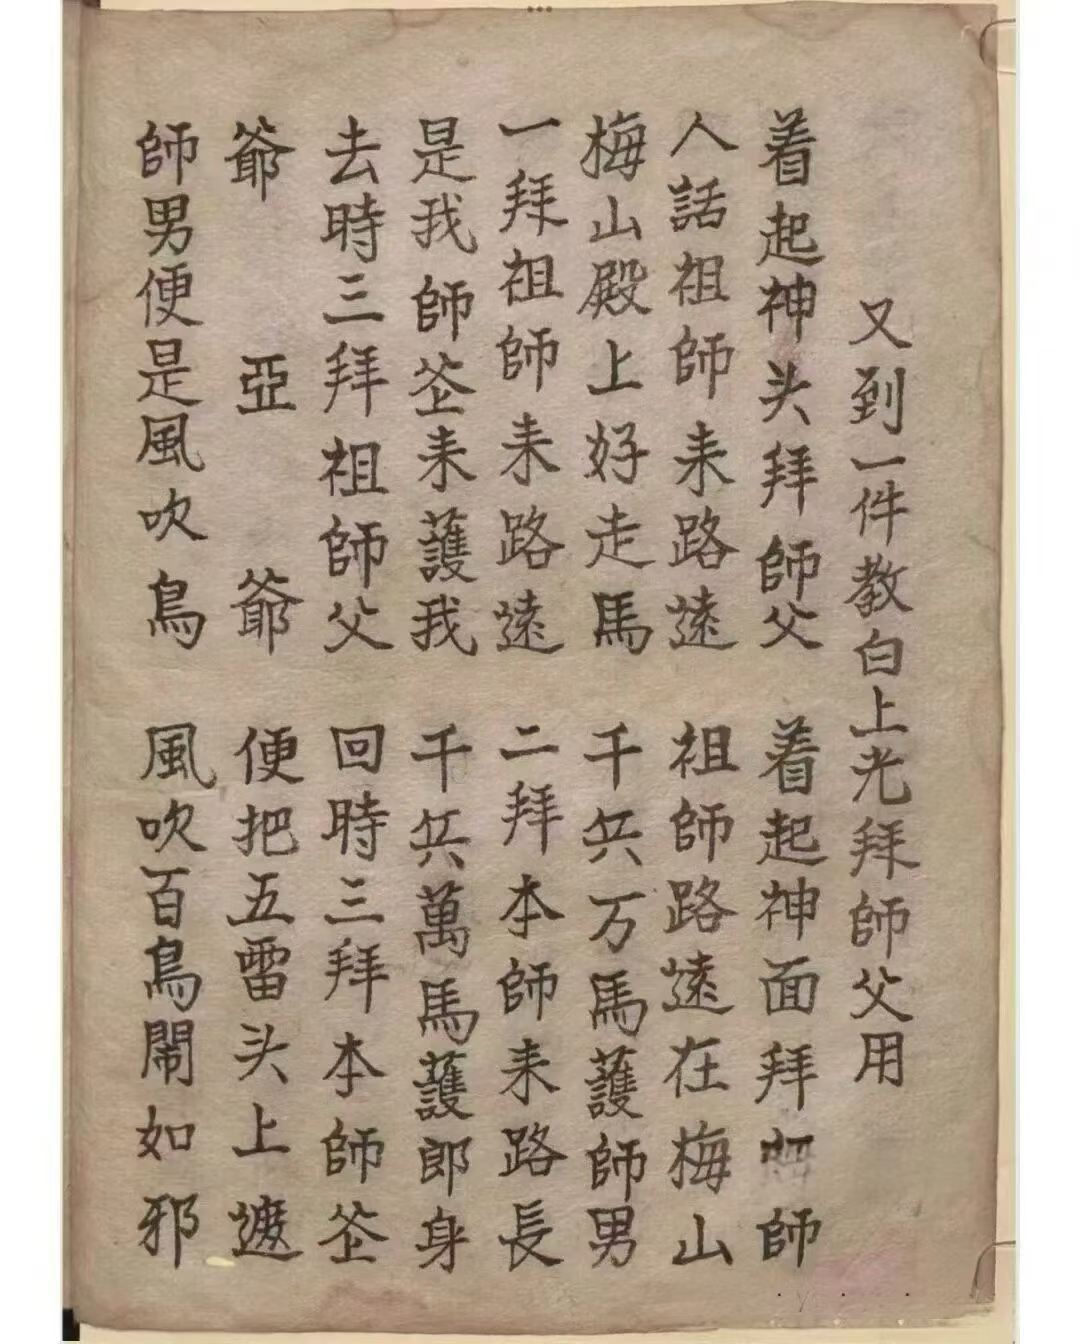 又到一件教白上光拜師父用
着起神头拜師父 着起神面拜師
人話祖師耒路遠 祖師路遠在梅山
梅山殿上好走馬 千兵万馬護師男
一拜祖師耒路遠 二拜本師耒路長
是我師苤耒護我 千兵萬馬護郎身
去時三拜祖師父 回時三拜本師苤
爺亞爺 便把五雷头上遮
師男便是風吹鳥 風吹百鳥鬧如邪